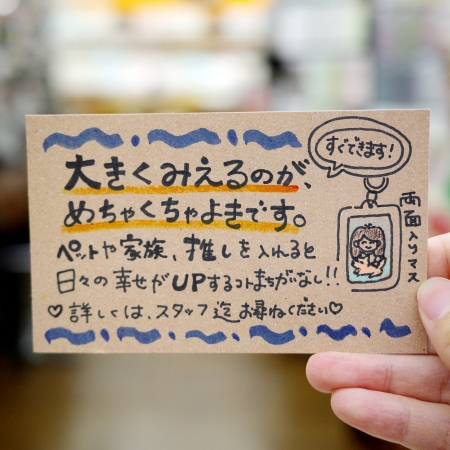 すぐできます!
大きくみえるのが、
めちゃくちゃよきです。
両面入りマス
ペットや家族、推しを入れると
日々の幸せがUPするコトまちがいなし!!
♡詳しくは、スタッフ迄お尋ねください♡